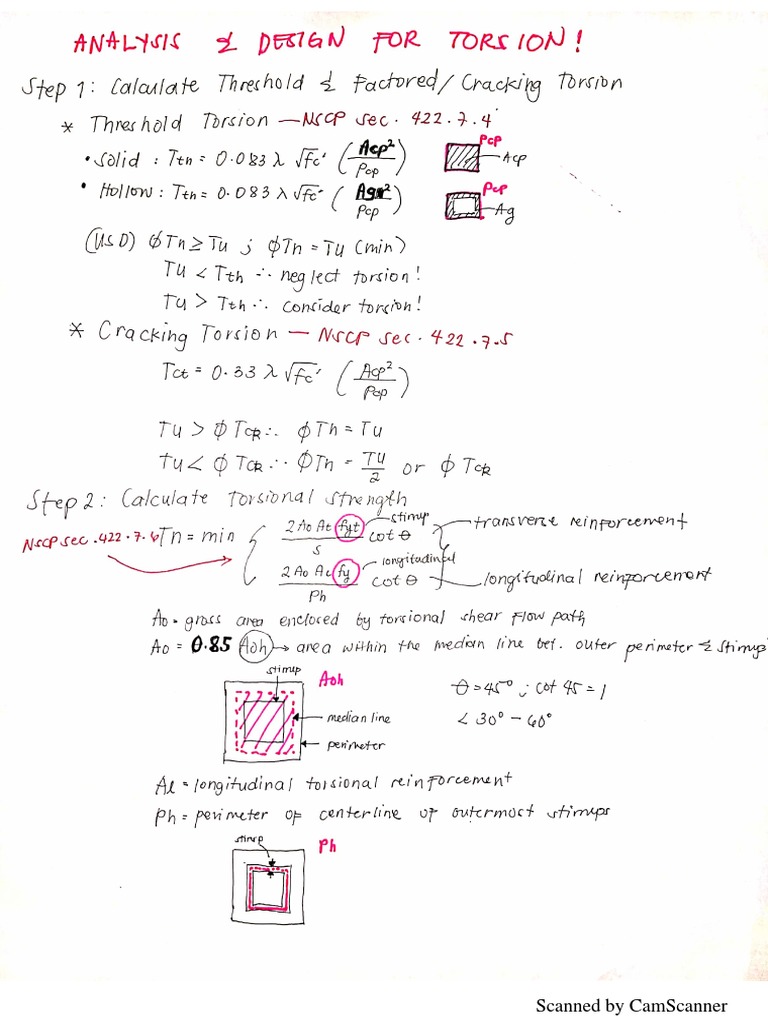 ANALYSIS & DESIGN FOR TORSION!
Step 1: Calculate Threshold & Factored/Cracking Torsion
* Threshold Torsion — NSCP sec. 422.7.4
• Solid : Tth = 0.083 λ √fc' (Acp²/Pcp)
Pcp
Acp
• Hollow : Tth = 0.083 λ √fc' (Ag²/Pcp)
Pcp
Ag
(USD) ϕTn ≥ Tu ; ϕTn = Tu (min)
Tu < Tth ∴ neglect torsion!
Tu > Tth ∴ consider torsion!
* Cracking Torsion — NSCP sec. 422.7.5
Tct = 0.33 λ √fc' (Acp²/Pcp)
Tu > ϕ TCR ∴ ϕTn = Tu
Tu < ϕ TCR ∴ ϕTn = Tu/2 or ϕ TCR
Step 2: Calculate Torsional Strength
NSCP sec. 422.7.6 Tn = min
2 Ao At fyt / S cot θ
stirrup
transverse reinforcement
2 Ao Al fy / Ph cot θ
longitudinal
longitudinal reinforcement
Ao = gross area enclosed by torsional shear flow path
Ao = 0.85 Aoh → area within the median line bet. outer perimeter & stirrup
stirrup
Aoh
median line
perimeter
θ = 45° ; cot 45 = 1
∠ 30° - 60°
Al = longitudinal torsional reinforcement
Ph = perimeter of centerline of outermost stirrups
stirrup
Ph
Scanned by CamScanner